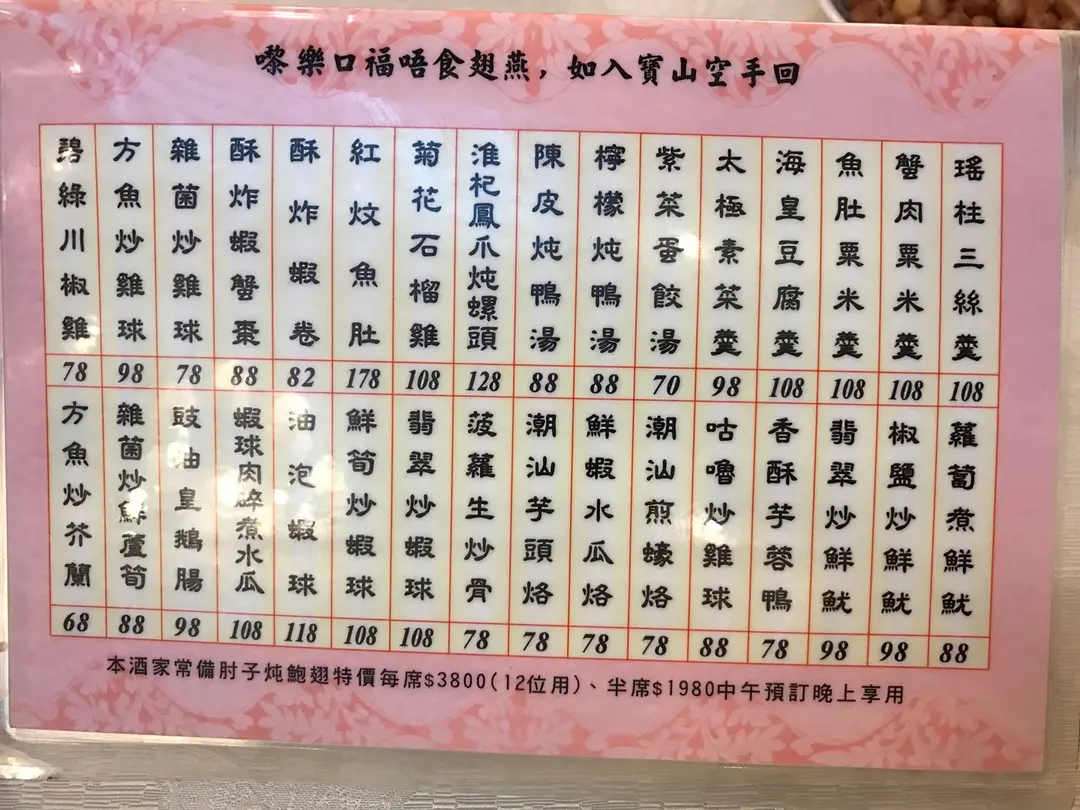 嚟樂口福唔食翅燕，如入寶山空手回
瑤柱三絲羹
108
蟹肉粟米羹
108
魚肚粟米羹
108
海皇豆腐羹
108
太極素菜羹
98
紫菜蛋餃湯
70
檸檬炖鴨湯
88
陳皮炖鴨湯
88
淮杞鳳爪炖螺頭
128
菊花石榴雞
108
紅炆魚肚
178
酥炸蝦卷
82
酥炸蝦蟹棗
88
雜菌炒雞球
78
方魚炒雞球
98
碧綠川椒雞
78
蘿蔔煮鮮魷
88
椒鹽炒鮮魷
98
翡翠炒鮮魷
98
香酥芋蓉鴨
78
咕嚕炒雞球
88
潮汕煎蠔烙
78
鮮蝦水瓜烙
78
潮汕芋頭烙
78
菠蘿生炒骨
78
翡翠炒蝦球
108
鮮筍炒蝦球
108
油泡蝦球
118
蝦球肉碎煮水瓜
108
豉油皇鵝腸
98
雜菌炒鮮蘆筍
88
方魚炒芥蘭
68
本酒家常備肘子炖鮑翅特價每席$3800(12位用)、半席$1980中午預訂晚上享用